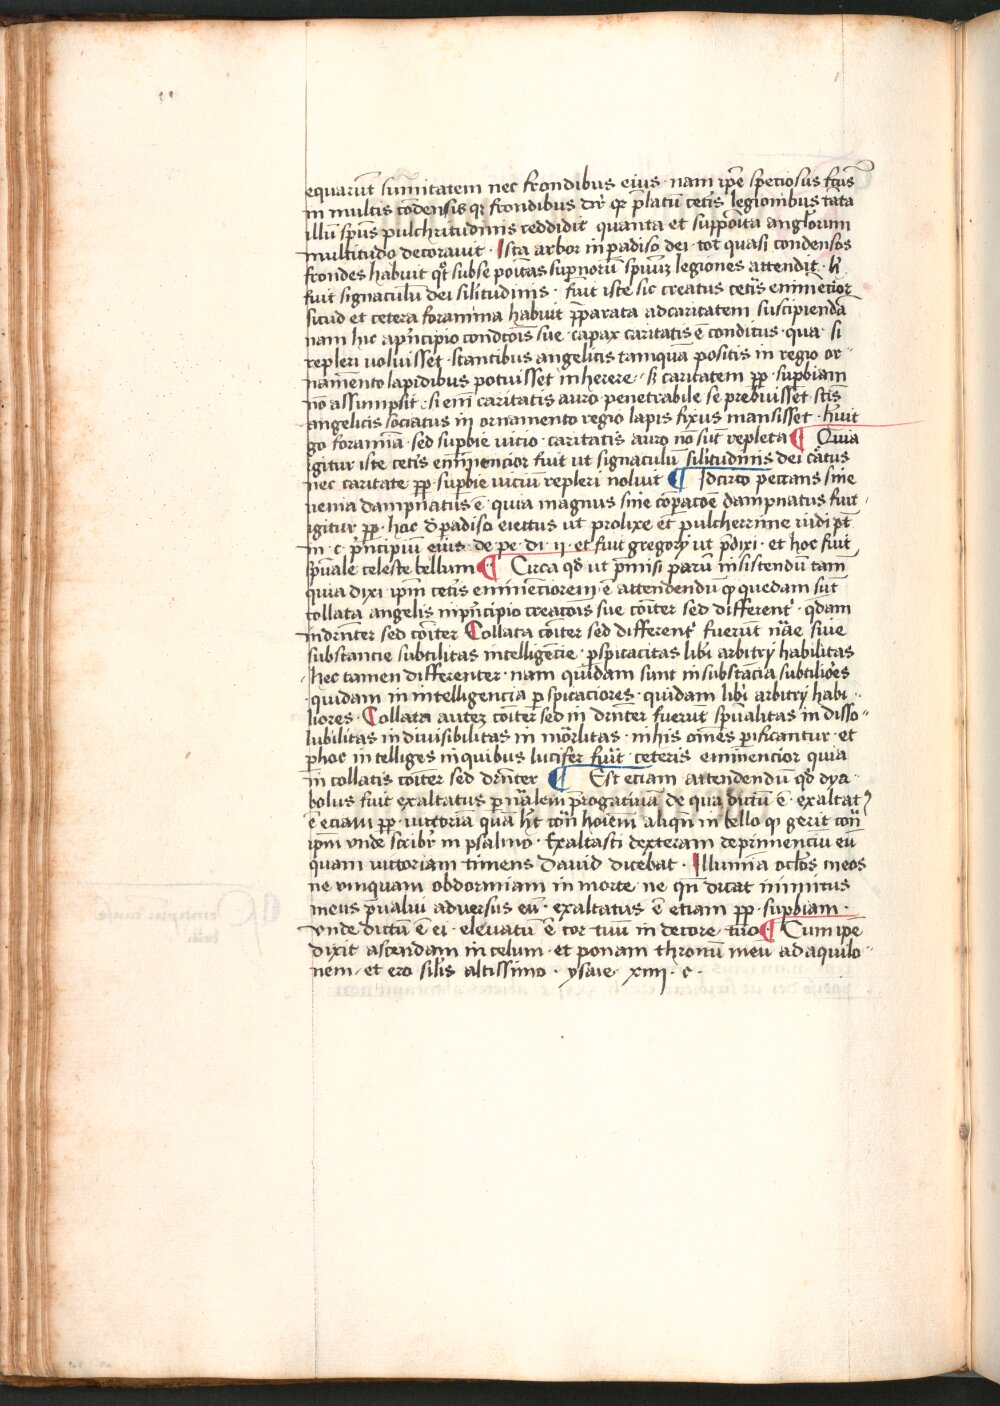 equarūt sum̄itatem nec frondibus eius · nam ip̄e speciosus factus
in multis condensis q̄ frondibus dr̄ q̄ p̄latū cetīs legionibus tāta
illū sp̄ius pulchritudinis reddidit quanta et supp̄oīta anglorum
multitudo decorauit · Ista arbor in padiso dei · tot quasi condensos
frondes habuit q̄t sub se poītas sup̄norū sp̄ituū legiones attendit · h̄
fuit signaculū dei sīlitudinis · fuit iste sic creatus cetīs emīnētior
sicud et cetera foramina habuit p̄parata ad caritatem suscipiendā
nam hic a p̄ncipio condcōis sue · capax caritatis ē conditus · qua · si
repleri uoluisset · stantibus angelicis tamquā positis in regio or
namēto lapidibus potuisset inherere · s̄ caritatem pp̄ · supbiam
nō assumpsit · si enī caritatis auro penetrabile se prebuissēt · scīs
angelicis sociatus in ornamento regio lapis fixus mansisset · h̄uit
go foramīa · sed supbie uicio · caritatis auro nō sūt repleta ¶ Quia
igitur iste cetīs emīnencior fuit ut signaculū sīlitudinis dei cātus
nec caritate pp̄ · supbie uiciū repleri noluit ¶ Idcirco peccans sine
uenia dampnatus ē · quia magnus sine cōpacōe dampnatus fuit
igitur pp̄ · hoc d̄ padiso eiectus ut prolixe et pulcherrime uidi pt̄
in · c · p̄ncipiū eius · de pe · di · ij · et fuit gregorij ut p̄dixi · et hoc fuit
sp̄uale celeste bellum ¶ Circa qd̄ ut p̄misi parū insistendū tam
quia dixi ip̄m cetīs eminēciorem ē attendendū q̄ quedam sūt
collata angelis in p̄ncipio creacōis sue cōiter sed differēnt' · qdam
indrn̄ter sed cōiter Collata cōiter sed differēnt' fuerūt nāe siue
substancie subtilitas intelligēcie · pspicacitas lib̄i arbitrij habilitas
hec tamen differenter · nam quidam sunt in substācia subtiliōes
quidam in intelligencia pspicaciores · quidam lib̄i arbitrij habi
liores · Collata autez cōiter sed in drn̄ter fuerūt sp̄ualitas in disso
lubilitas indiuisibilitas inmōrlitas · in his om̄es pificantur · et
p hoc intelliges in quibus lucifer fuit ceteris eminencior quia
in collatis cōiter sed drn̄ter ¶ Est eciam attendendū qd̄ dya
bolus fuit exaltatus p nālem p̄rogatiuā de qua dictū ē · exaltat'
ē eciam pp̄ · uictoriā quā h̄t con̄ hoīem aliqn̄ in bello q̄ gerit con̄
ip̄m vnde scribr̄ in psalmo · Exaltasti dexteram deprimenciū eū
quam uictoriam timens Dauid dicebat · Illumīa oclōs meos
ne vmquam obdormiam in morte ne qn̄ dicat inimicus
meus p̄ualui aduersus eū · exaltatus ē etiam pp̄ · supbiam ·
vnde dictū ē ei · eleuatū ē cor tuū in decore tuo ¶ Cum ip̄e
dixit ascendam in celum · et ponam thronū meū ad aquilo
nem · et ero silīs altissimo · ysaie · xiiij · c ·